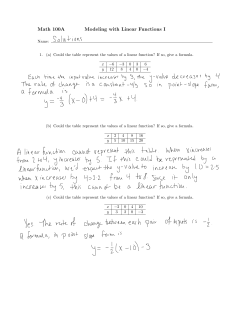 Math 100A Modeling with Linear Functions I
Name: Solutions
1. (a) Could the table represent the values of a linear function? If so, give a formula.
x -6 -3 0 3 6
y 12 8 4 0 -4
Each time the input value increases by 3, the y-value decreases by 4
The rate of change is a constant -4/3 so in point-slope form,
a formula is
y = -4/3 (x-0)+4 = -4/3 x +4
(b) Could the table represent the values of a linear function? If so, give a formula.
A linear function cannot represent this table. When x increases
from 2 to 4, y increases by 5. If this could be represented by a
linear function, we'd expect the y-value to increase by
when x increases by from 4 to 8. Since it only
increases by 5, this cannot be a linear function.
(c) Could the table represent the values of a linear function? If so, give a formula.
Yes. The rate of change between each pair of inputs is -1/2
A formula, in point slope form is
y = -1/2 (x-10) -3